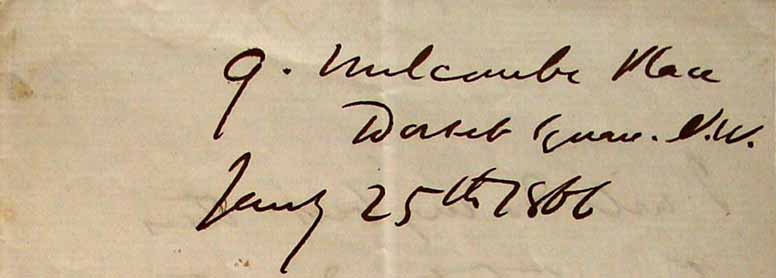 9. Melcombe Place
Dorset Square. N.W.
Jany 25th 1866